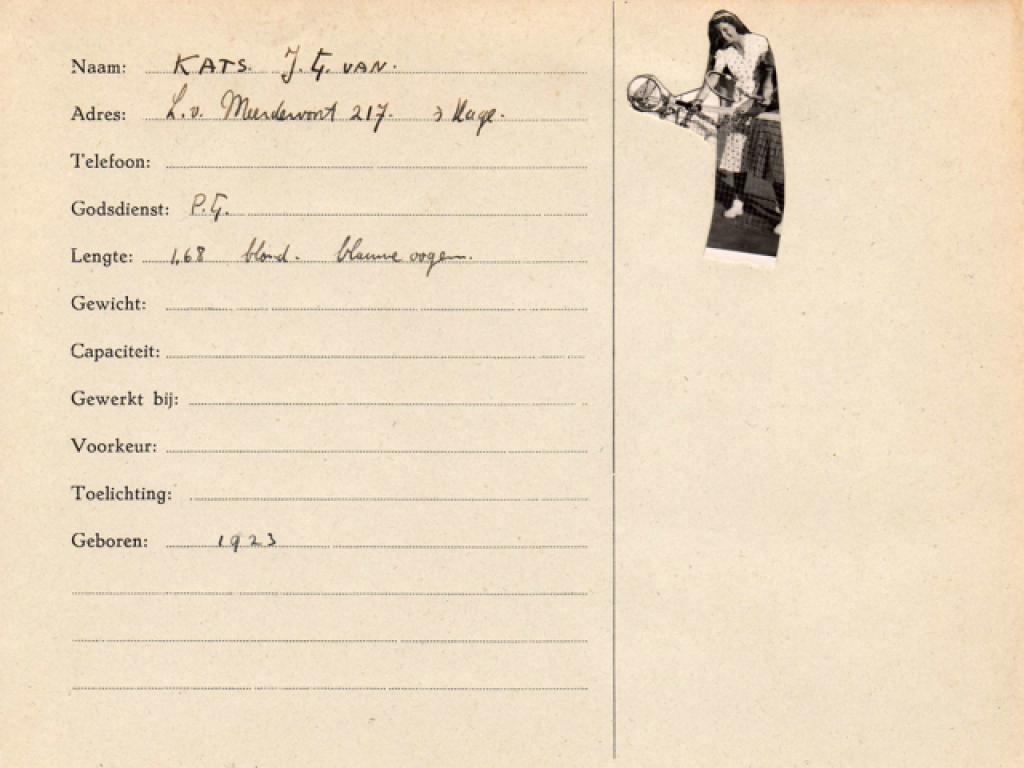 Naam: KATS. J. G. VAN.
Adres: L. v. Meerdervoort 217. 's Hage.
Telefoon:
Godsdienst: P.G.
Lengte: 1,68 blond. blauwe oogen.
Gewicht:
Capaciteit:
Gewerkt bij:
Voorkeur:
Toelichting:
Geboren: 1923